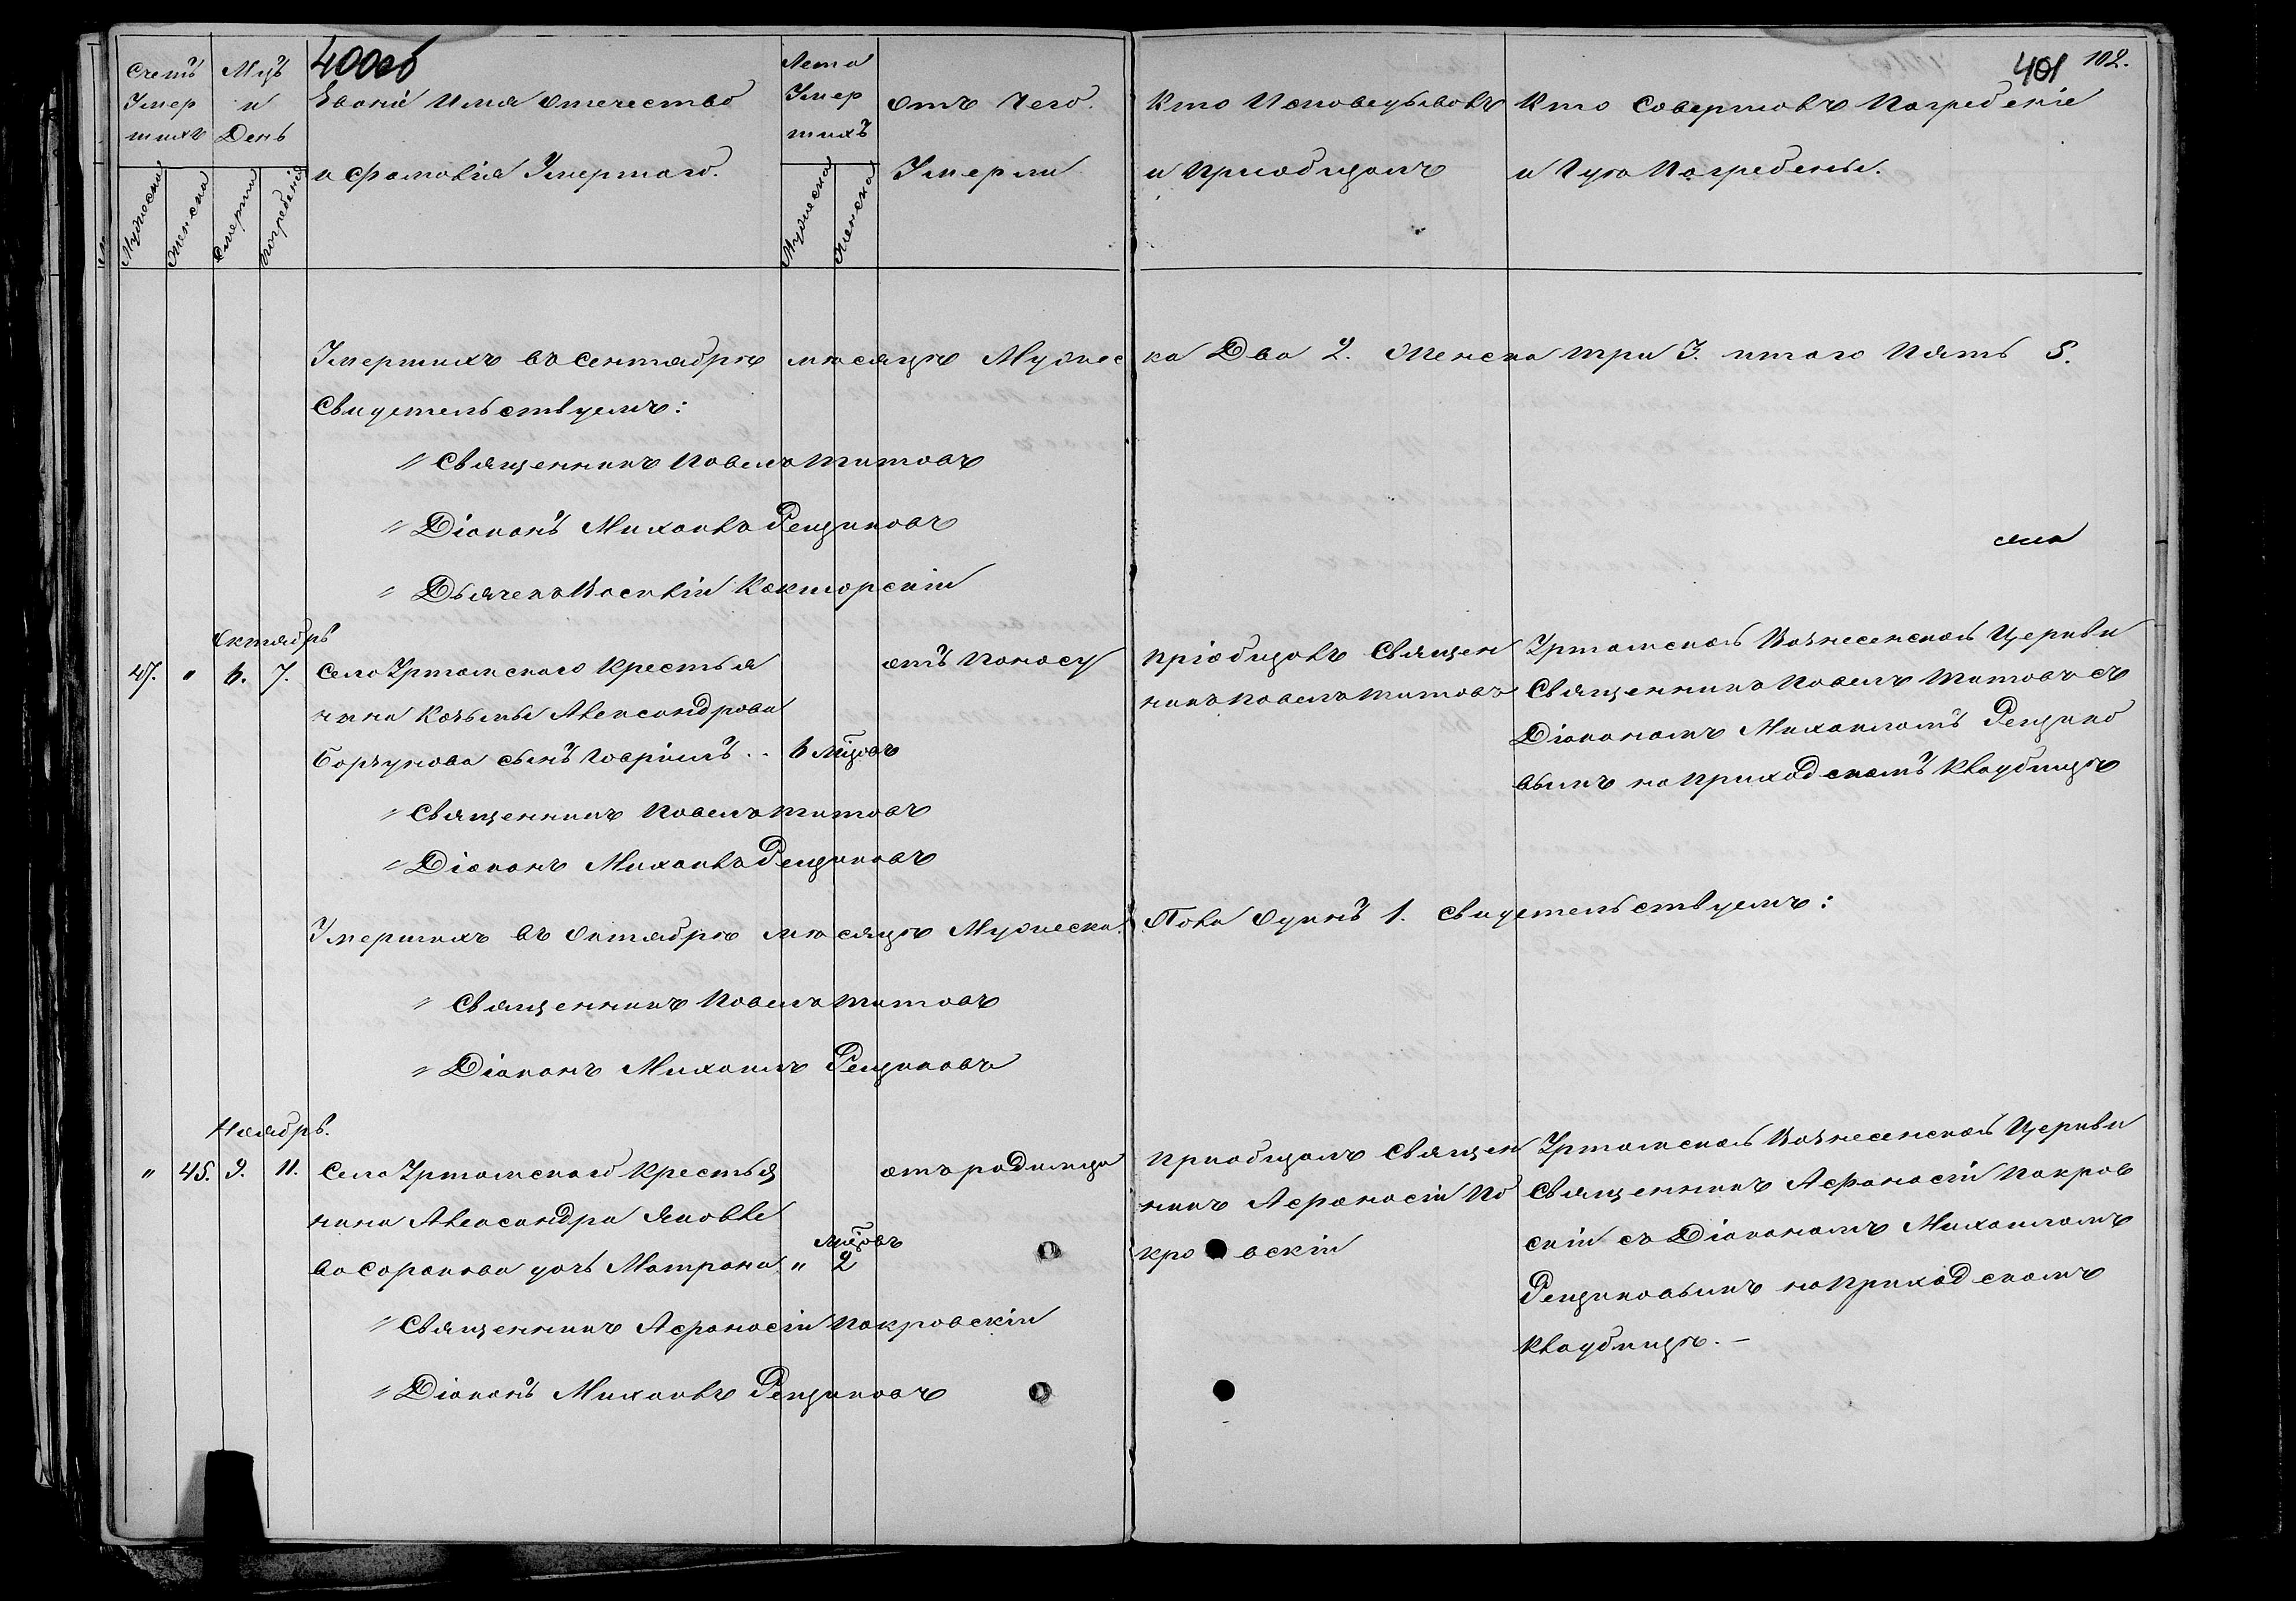 400об
Счетъ
Умер
шихъ
Мужеска
Женска
Мцъ
и
День
Смерти
погребенія
Званіе Имя Отечество
и Фамилія Умершаго.
Лета
Умер
шихъ
Мужеска
Женска
Отъ Чего
Умерли
Кто Исповедывалъ
и Приобщалъ
401 102.
Кто Совершалъ Погребеніе
и Где Погребены.
Умершихъ въ Сентябрѣ мѣсяцѣ Мужес
ка Два 2. Женска три 3. итого Пять 5.
Свидетельствуемъ:
" Священникъ Павелъ Титовъ
" Діаконъ Михаилъ Рещиковъ
" Дьячекъ Василій
Октябрь
47. " 6. 7. Села Уртамскаго Крестья
нина Козьмы Александрова
сынъ Гавріилъ .. 6 мцовъ
отъ Поносу
Пріобщалъ Священ
никъ Павелъ Титовъ
Уртамской Вознесенской Церкви
Священникъ Павелъ Титовъ съ
Діакономъ Михаиломъ Рещико
вымъ на Приходскомъ Кладбищѣ
" Священникъ Павелъ Титовъ
" Діаконъ Михаилъ Рещиковъ
Умершихъ въ Октябрѣ мѣсяцѣ Мужеска
Пола Одинъ 1. Свидетельствуемъ:
" Священникъ Павелъ Титовъ
" Діаконъ Михаилъ Рещиковъ
Ноябрь.
" 45. 9. 11. Села Уртамскаго Крестья
нина Александра Яковле
ва Соракова дочь Матрона " 2
мцовъ
отъ родимца
Приобщалъ Священ
никъ Афонасій По
кровскій
Уртамской Вознесенской Церкви
Священникъ Афонасій Покров
скій съ Діакономъ Михаиломъ
Рещиковымъ на Приходскомъ
Кладбищѣ. –
" Священникъ Афонасій Покровскій
" Діаконъ Михаилъ Рещиковъ